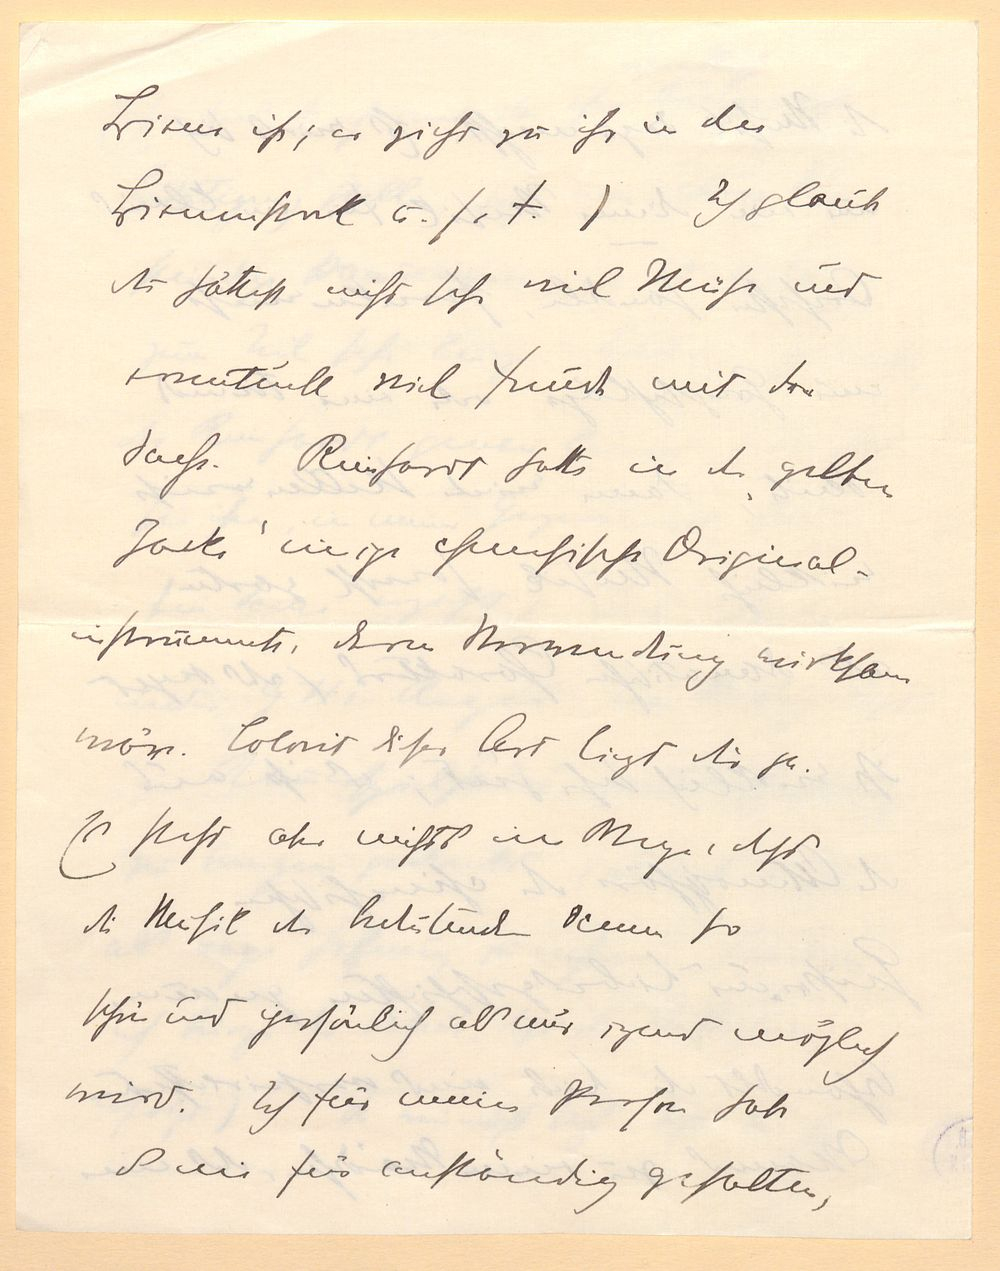 Birnen ist; er zieht zu ihr in den
Birnenstock u. s. f. ) Ich glaube
du hättest nicht sehr viel Mühe und
eventuell viel Freude mit der
Sache. Reinhardt hatte in der „gelben
Jacke' einige chinesische Original-
instrumente, deren Verwendung wirksam
wäre. Colorit dieser Art liegt dir ja.
Es steht aber nichts im Wege, daß
die Musik der bedeutenden Scenen so
schön und persönlich als nur irgend möglich
wird. Ich für meine Person habe
es nie für anständig gehalten,